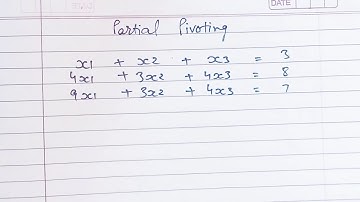 DATE
Partial Pivoting
x1 + x2 + x3 = 3
4x1 + 3x2 + 4x3 = 8
9x1 + 3x2 + 4x3 = 7